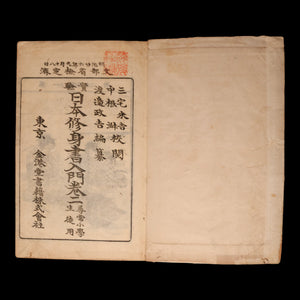 明治廿六年九月十八日
文部省檢定濟
三宅米吉校閲
中根淑
渡邊政吉編纂
實驗日本修身書入門卷二 尋常小學生徒用
東京 金港堂書籍株式會社